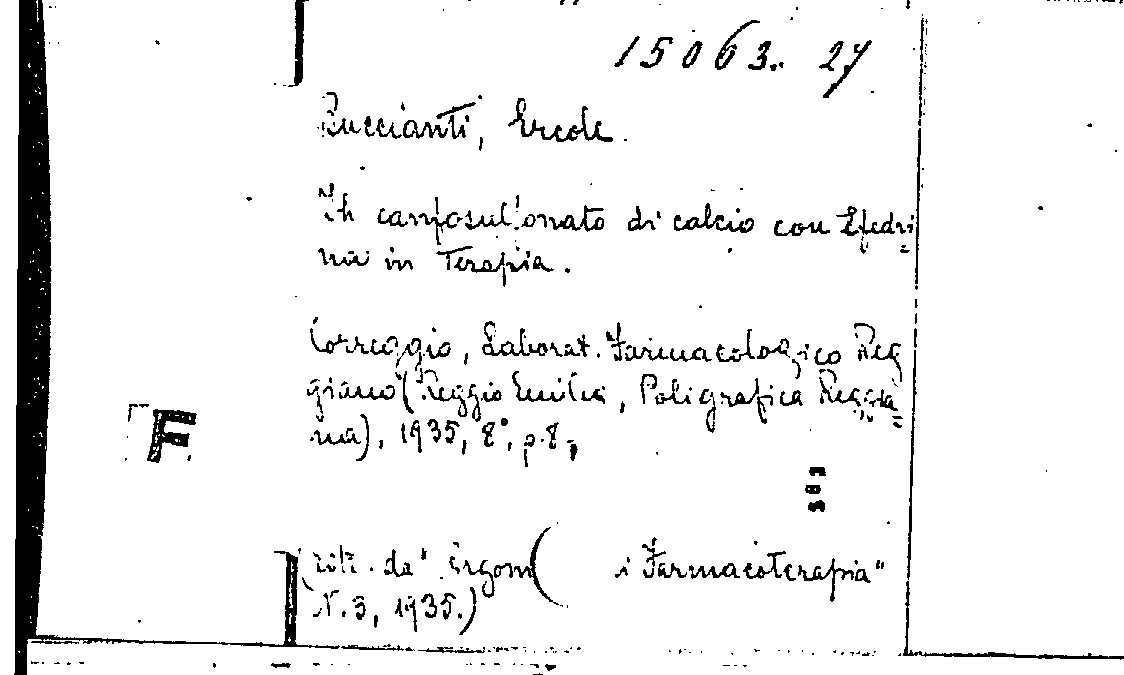 15063. 27
Buccianti, Ercole.
Il canfosulfonato di calcio con Efedri=
na in Terapia.
Correggio, Laborat. Farmacologico Reg
giano (Reggio Emilia, Poligrafica Reggia=
na), 1935, 8°, p. 8.
F
503
da "
i Farmacoterapia"
N. 3, 1935.)